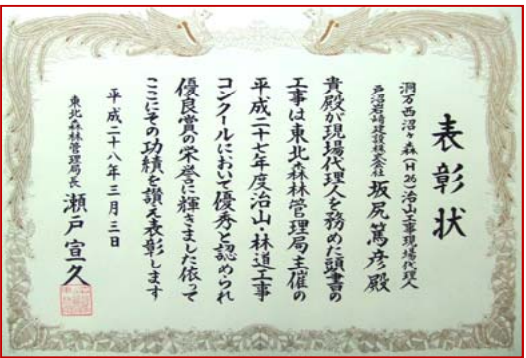 表彰状
洞万西沼ヶ森(H26)治山工事現場代理人
戸沼岩崎建設株式会社 坂尻篤彦殿
貴殿が現場代理人を務めた頭書の
工事は東北森林管理局主催の
平成二十七年度治山・林道工事
コンクールにおいて優秀と認められ
優良賞の栄誉に輝きました依って
ここにその功績を讃え表彰します
平成二十八年三月三日
東北森林管理局長 瀬戸宣久